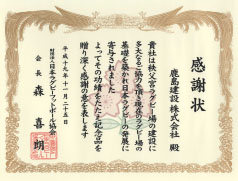 感謝状
鹿島建設株式会社 殿
貴社は秩父宮ラグビー場の建設に
多大なるご協力を頂き現在のラグビー場の
基礎を築かれ日本ラグビーの発展に
寄与されました
よってその功績をたたえ記念品を
贈り深く感謝の意を表します
平成十九年十一月二十五日
財団法人 日本ラグビーフットボール協会
会長 森 喜朗